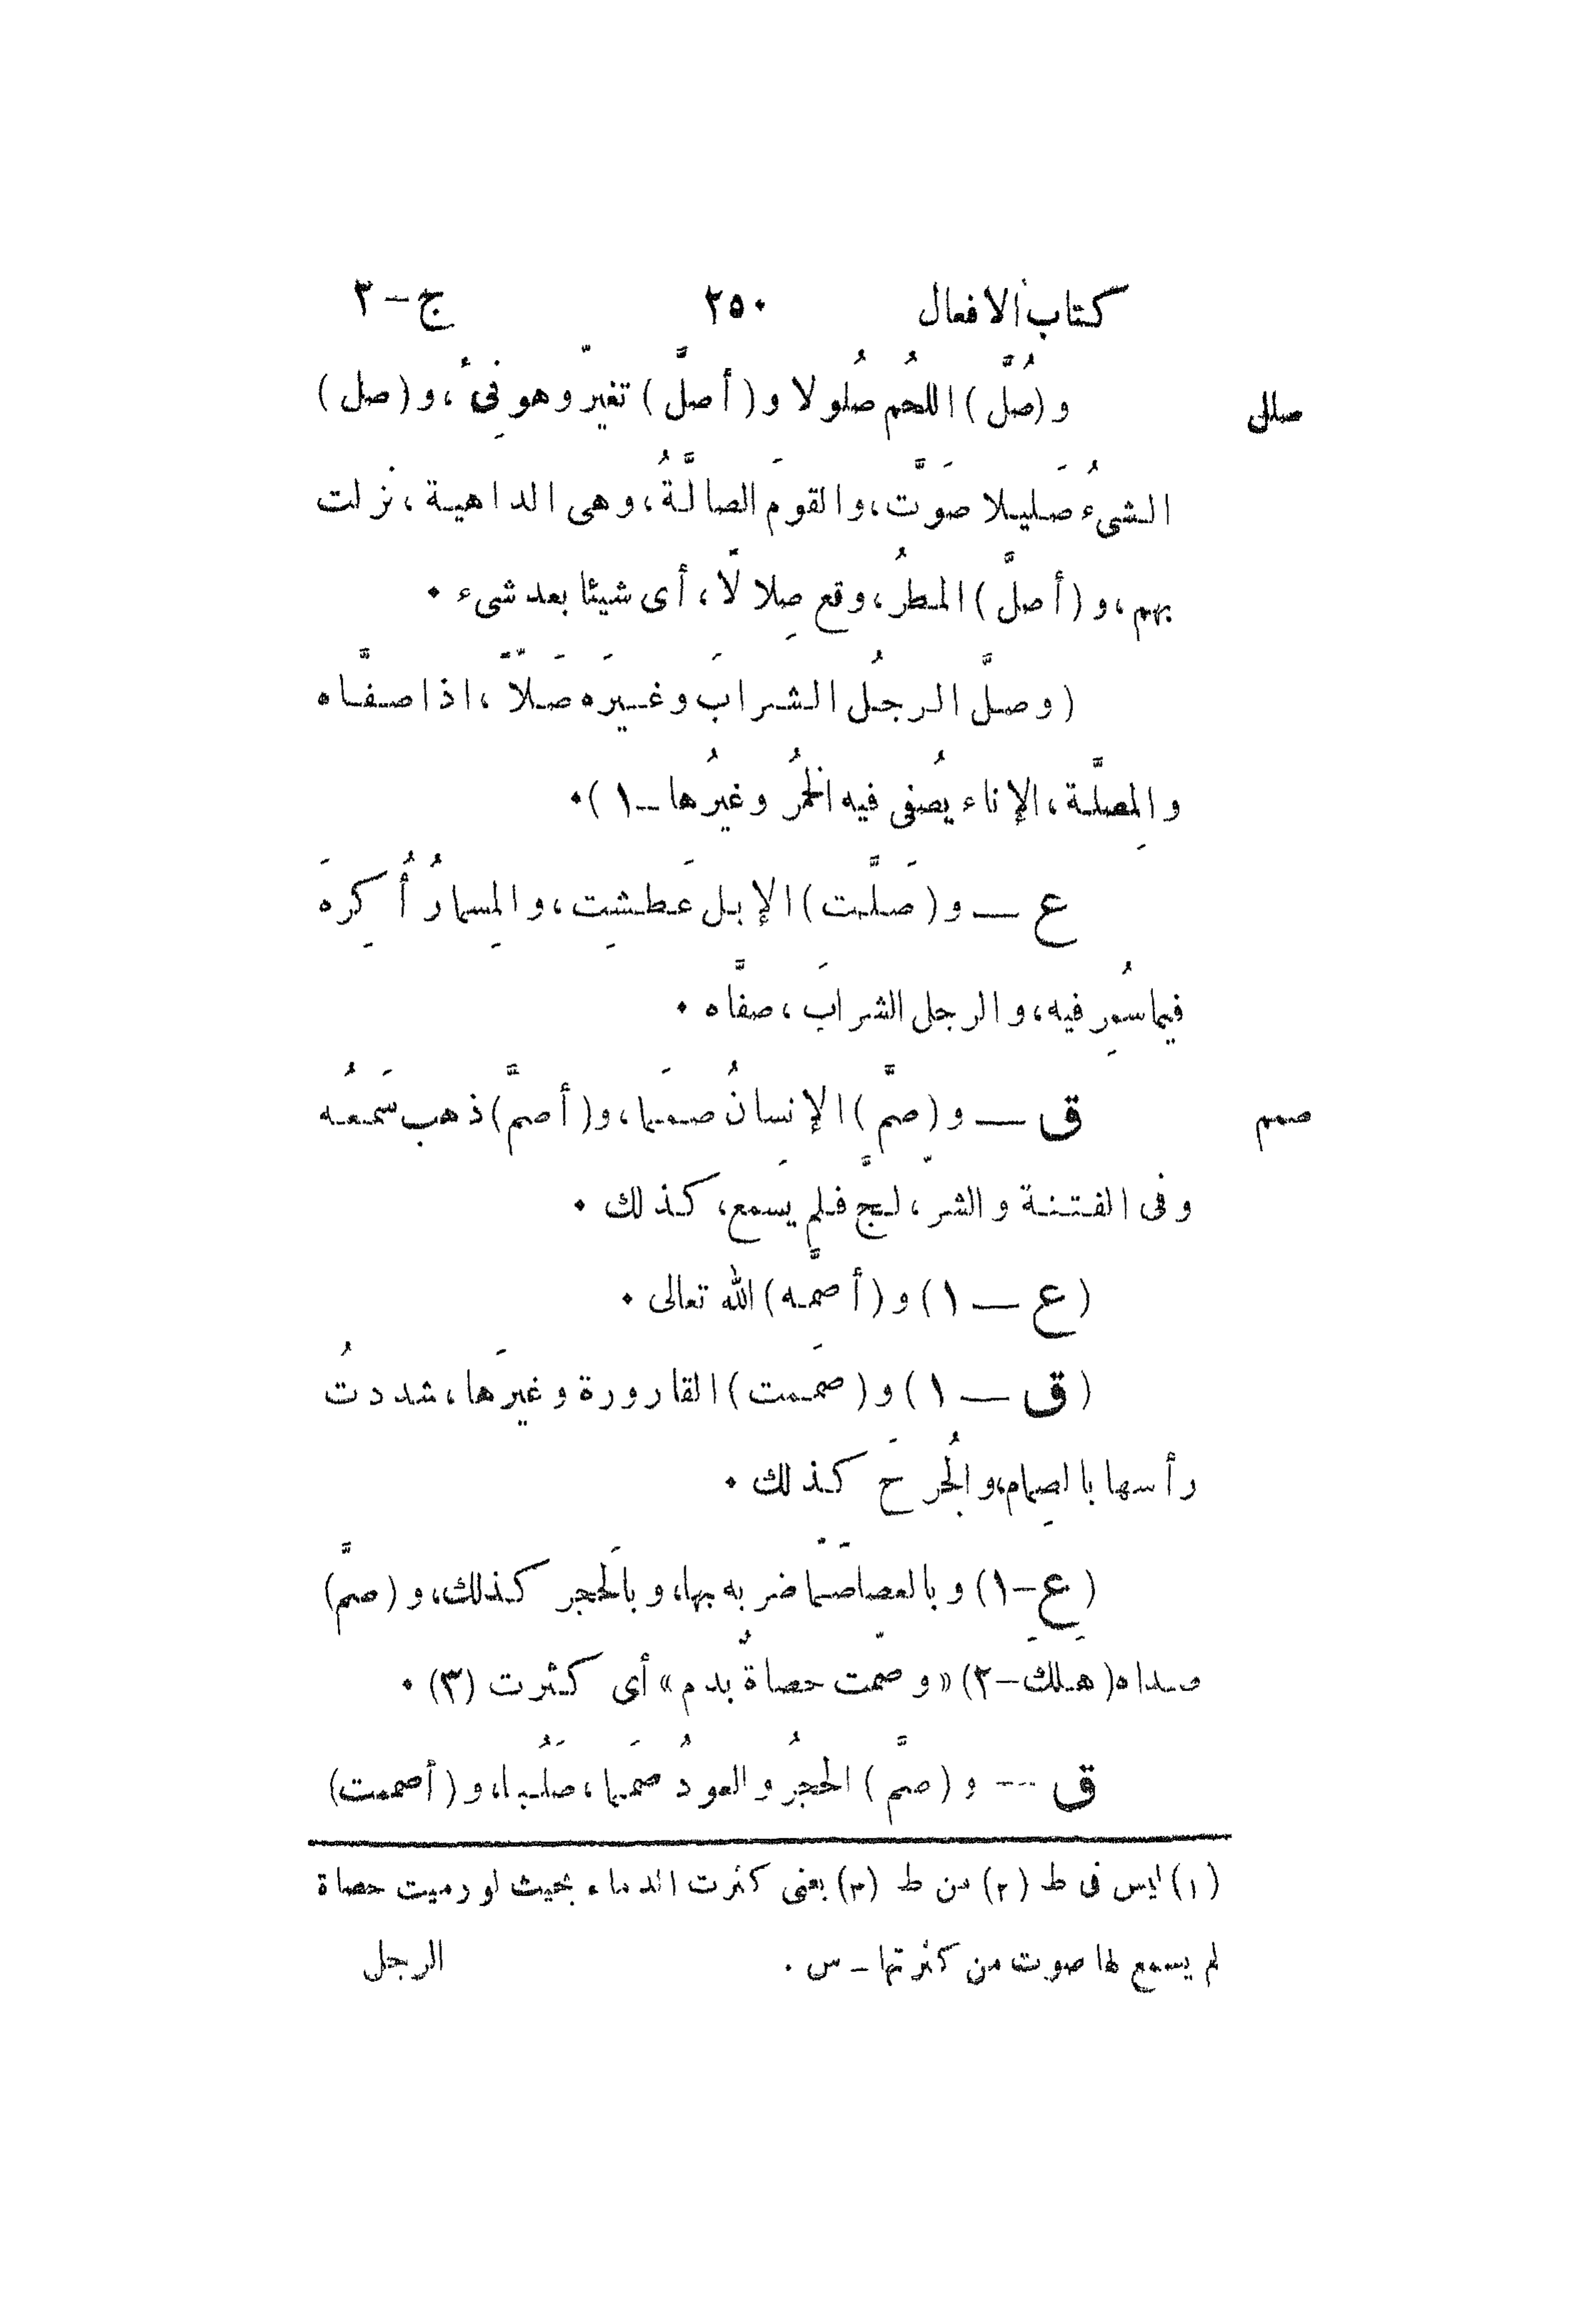 كتاب الافعال ٢٥٠ ج – ٢
صلل و (صُلَّ) اللحُم صُلولا و (أصلَّ) تغيّر وهو نِىءُ، و (صل)
الشىءُ صَليلا صَوَّت، والقومَ الصالَّةُ، وهى الداهية، نزلت
بهم، و (أصلَّ) المطرُ، وقع صِلالًا، أى شيئا بعد شىء ٠
(وصلَّ الرجلُ الشرابَ وغيرَه صَلاًّ، اذا صفَّاه
والمِصلَّة، الإناء يُصفى فيه الخمرُ وغيرُها – ١) ٠
ع — و (صَلَّت) الإبل عَطشِت، والمِسمارُ أُكرِهَ
فيما سُمِر فيه، والرجل الشرابَ، صفَّاه ٠
صمم ق — و (صمَّ) الإنسانُ صمَما، و (أصمَّ) ذهب سَمعُه
وفى الفتنة والشرّ، لجَّ فلم يَسمع، كذلك ٠
(ع — ١) و (أصمَّه) الله تعالى ٠
(ق — ١) و (صمَمت) القارورة وغيرَها، شددتُ
رأسها بالصِمام، والجُرحَ كذلك ٠
(ع – ١) وبالعصا صَمًّا ضربه بها، وبالَحجر كذلك، و (صمَّ)
صداه (هلك – ٢) «وصمِّت حصاةٌ بدم» أى كثرت (٣) ٠
ق --- و (صمَّ) الحجرُ والعودُ صمَما، صَلُبا، و (أصممت)
(١) ليس فى ط (٢) من ط (٣) يعنى كثرت الدماء بحيث لو رميت حصاة
لم يسمع لها صوت من كثرتها – س ٠ الرجل